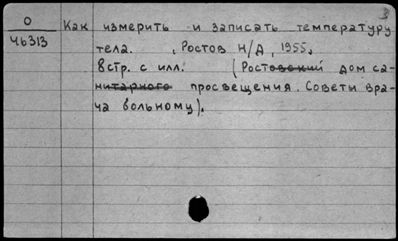 3
О
Ч6313
Как измерить и записать температуру
тела. , Ростов Н/Д, 1955.
8 стр. с илл. (Ростовский дом са-
нитарного просвещения. Советы вра-
ча больному).